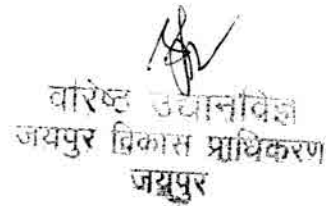 वरिष्ठ उद्यानविज्ञ
जयपुर विकास प्राधिकरण
जयपुर